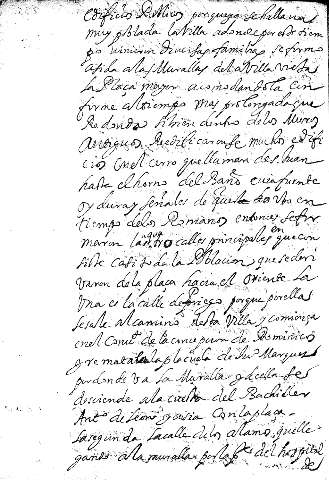 edificios Publicos porque ya se hallava
muy poblada la Villa adonde por este tiem
po vinieron diversas familias se formo
asida a las Murallas dela Villa vieja
la Plaza mayor acomodandola con
forme al tiempo mas prolongada que
Redonda si bien dentro de los Muros
Antiguos Redificaronse muchos edifi
cios en el cerro que llaman de S. Juan
hasta el horno del Baño cuia fuente
oy dura y señales de que le ubo en
tiempo de los Romanos entonces se for
maron las quatro calles principales en que con
siste casi todo la Poblacion que se deri
varon de la plaza hacia el oriente la
Una es la calle de Priego porque por ella
se sale al camino desta Villa y comienza
en el Conv.to de la concepcion de Dominicos
y remata en la plazuela de los Marques
por donde va la Muralla y della se
desciende a la cuesta del Bachiller
Ant.o de Leon y garcia con la plaza
la segunda la calle de los alamos que lle
gando a la muralla por la p.te del hospital
del